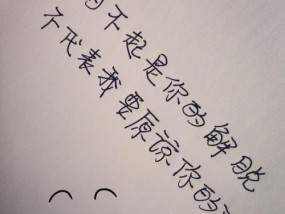 不起是你的解脱
不代表我要原谅你的